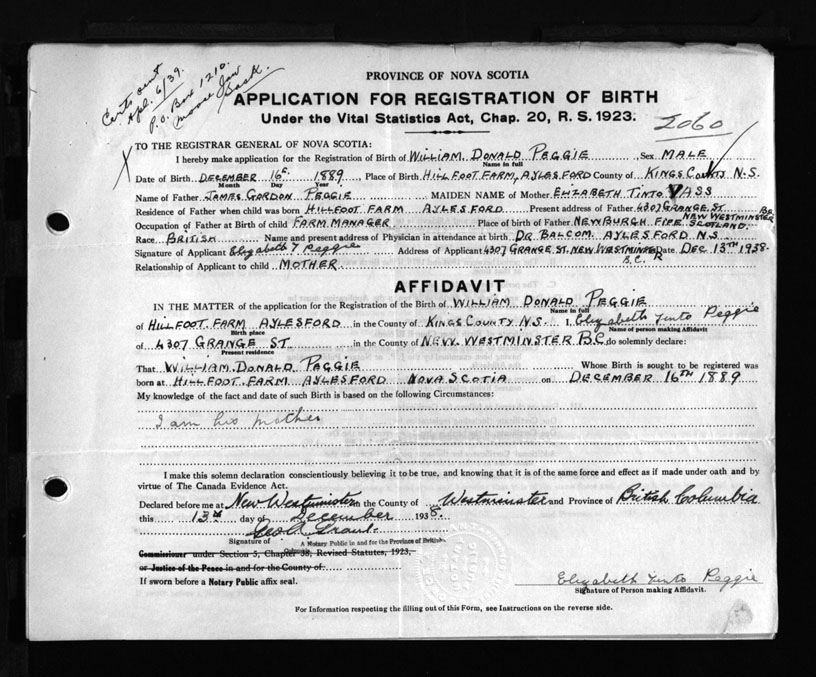 Certs sent
Apl. 6/39.
P.O. Box 1210.
Moose Jaw
Sask.
PROVINCE OF NOVA SCOTIA
APPLICATION FOR REGISTRATION OF BIRTH
Under the Vital Statistics Act, Chap. 20, R. S. 1923.
2060
TO THE REGISTRAR GENERAL OF NOVA SCOTIA:
I hereby make application for the Registration of Birth of WILLIAM DONALD PEGGIE Sex MALE
Name in full
Date of Birth DECEMBER 16th 1889, Place of Birth HILLFOOT FARM, AYLESFORD County of KINGS COUNTY N.S.
Month Day Year
Name of Father JAMES GORDON PEGGIE MAIDEN NAME of Mother ELIZABETH TINTO VASS
Residence of Father when child was born HILLFOOT FARM AYLESFORD Present address of Father 4307 GRANGE ST
NEW WESTMINSTER B.C.
Occupation of Father at Birth of child FARM MANAGER Place of birth of Father NEWBURGH FIFE SCOTLAND.
Race BRITISH Name and present address of Physician in attendance at birth DR BALCOM AYLESFORD N.S.
Signature of Applicant Elizabeth T Peggie Address of Applicant 4307 GRANGE ST. NEW WESTMINSTER Date DEC 13TH 1938.
B.C.
Relationship of Applicant to child MOTHER
AFFIDAVIT
IN THE MATTER of the application for the Registration of the Birth of WILLIAM DONALD PEGGIE
Name in full
of HILLFOOT FARM AYLESFORD in the County of KINGS COUNTY N.S. I, Elizabeth Tinto Peggie
Birth place Name of person making Affidavit
of 4307 GRANGE ST in the County of NEW WESTMINSTER B.C. do solemnly declare:
Present residence
That WILLIAM DONALD PEGGIE Whose Birth is sought to be registered was
born at HILLFOOT FARM AYLESFORD NOVA SCOTIA on DECEMBER 16TH 1889
My knowledge of the fact and date of such Birth is based on the following Circumstances:
I am his mother
I make this solemn declaration conscientiously believing it to be true, and knowing that it is of the same force and effect as if made under oath and by
virtue of The Canada Evidence Act.
Declared before me at New Westminster in the County of Westminster and Province of British Columbia
this 13th day of December 1938.
Signature of A Notary Public in and for the Province of British
Commissioner under Section 5, Chapter 38, Revised Statutes, 1923,
or Justice of the Peace in and for the County of
If sworn before a Notary Public affix seal.
Elizabeth Tinto Peggie
Signature of Person making Affidavit.
For Information respecting the filling out of this Form, see Instructions on the reverse side.